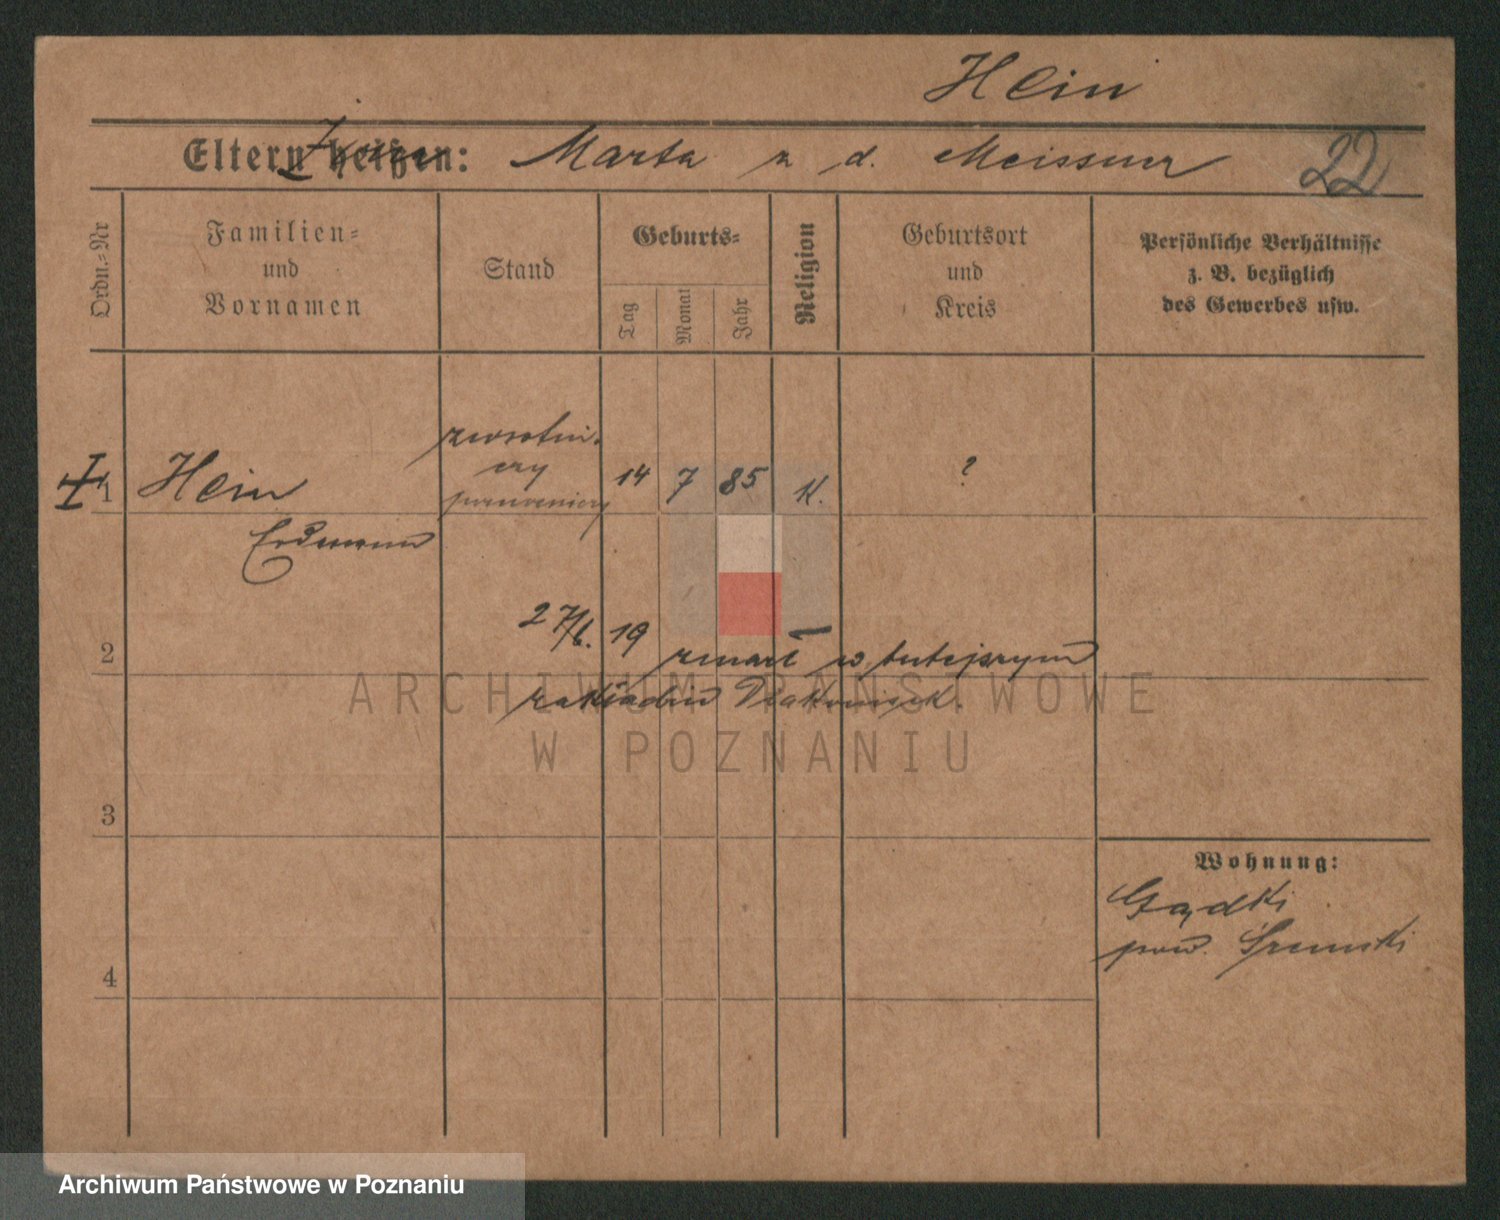 Hein
Eltern heißen: Marta z d. Meissner 22
Ordn.-Nr
Familien-
und
Vornamen
Stand
Geburts-
Tag
Monat
Jahr
Religion
Geburtsort
und
Kreis
Persönliche Verhältnisse
z. B. bezüglich
des Gewerbes usw.
zwrotni-
czy
pomocniczy
1 Hein 14 7 85 K. ?
Erdmann
27/6. 19 zmarł w tutejszym
2
zakładzie Diakonisek.
ARCHIWUM PAŃSTWOWE
W POZNANIU
3
Wohnung:
Gądki
pow. Śremski
4
Archiwum Państwowe w Poznaniu